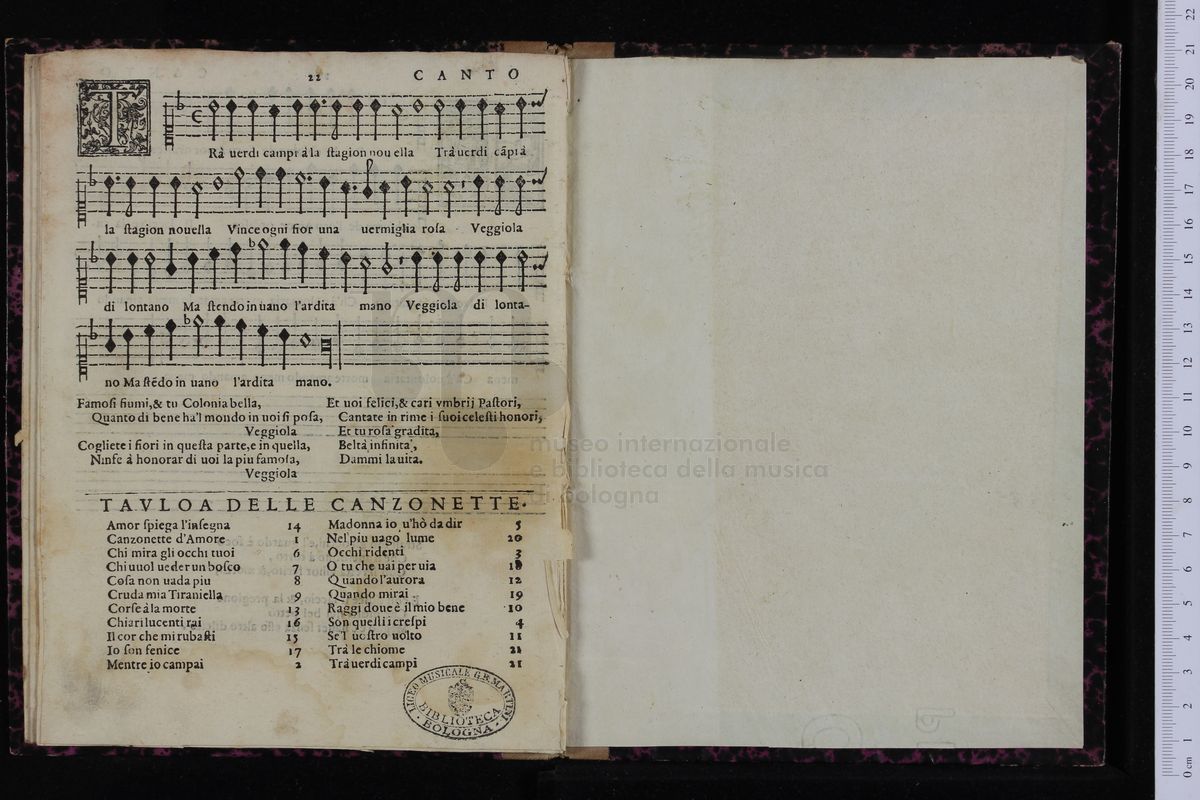 22 CANTO
T
Rà uerdi campi à la stagion nou ella Trà uerdi cãpi à
la stagion nouella Vince ogni fior una uermiglia rosa Veggiola
di lontano Ma stendo in uano l'ardita mano Veggiola di lonta-
no Ma stẽdo in uano l'ardita mano.
Famosi fiumi,& tu Colonia bella,
Quanto di bene ha'l mondo in uoi si posa,
Veggiola
Cogliete i fiori in questa parte,e in quella,
Ninfe à honorar di uoi la piu famosa,
Veggiola
Et uoi felici,& cari vmbrij Pastori,
Cantate in rime i suoi celesti honori,
Et tu rosa gradita,
Beltà infinita,
Dammi la uita.
TAVLOA DELLE CANZONETTE.
Amor spiega l'insegna 14
Canzonette d'Amore 1
Chi mira gli occhi tuoi 6
Chi uuol ueder un bosco 7
Cosa non uada piu 8
Cruda mia Tiraniella 9
Corse à la morte 13
Chiari lucenti rai 16
Il cor che mi rubasti 15
Io son fenice 17
Mentre io campai 2
Madonna io u'hò da dir 5
Nel piu uago lume 20
Occhi ridenti 3
O tu che uai per uia 18
Quando l'aurora 12
Quando mirai 19
Raggi doue è il mio bene 10
Son questi i crespi 4
Se'l uostro uolto 11
Trà le chiome 21
Trà uerdi campi 21
LICEO MUSICALE G.B. MARTINI
BIBLIOTECA
BOLOGNA
museo internazionale
e biblioteca della musica
di bologna
0 cm 1 2 3 4 5 6 7 8 9 10 11 12 13 14 15 16 17 18 19 20 21 22